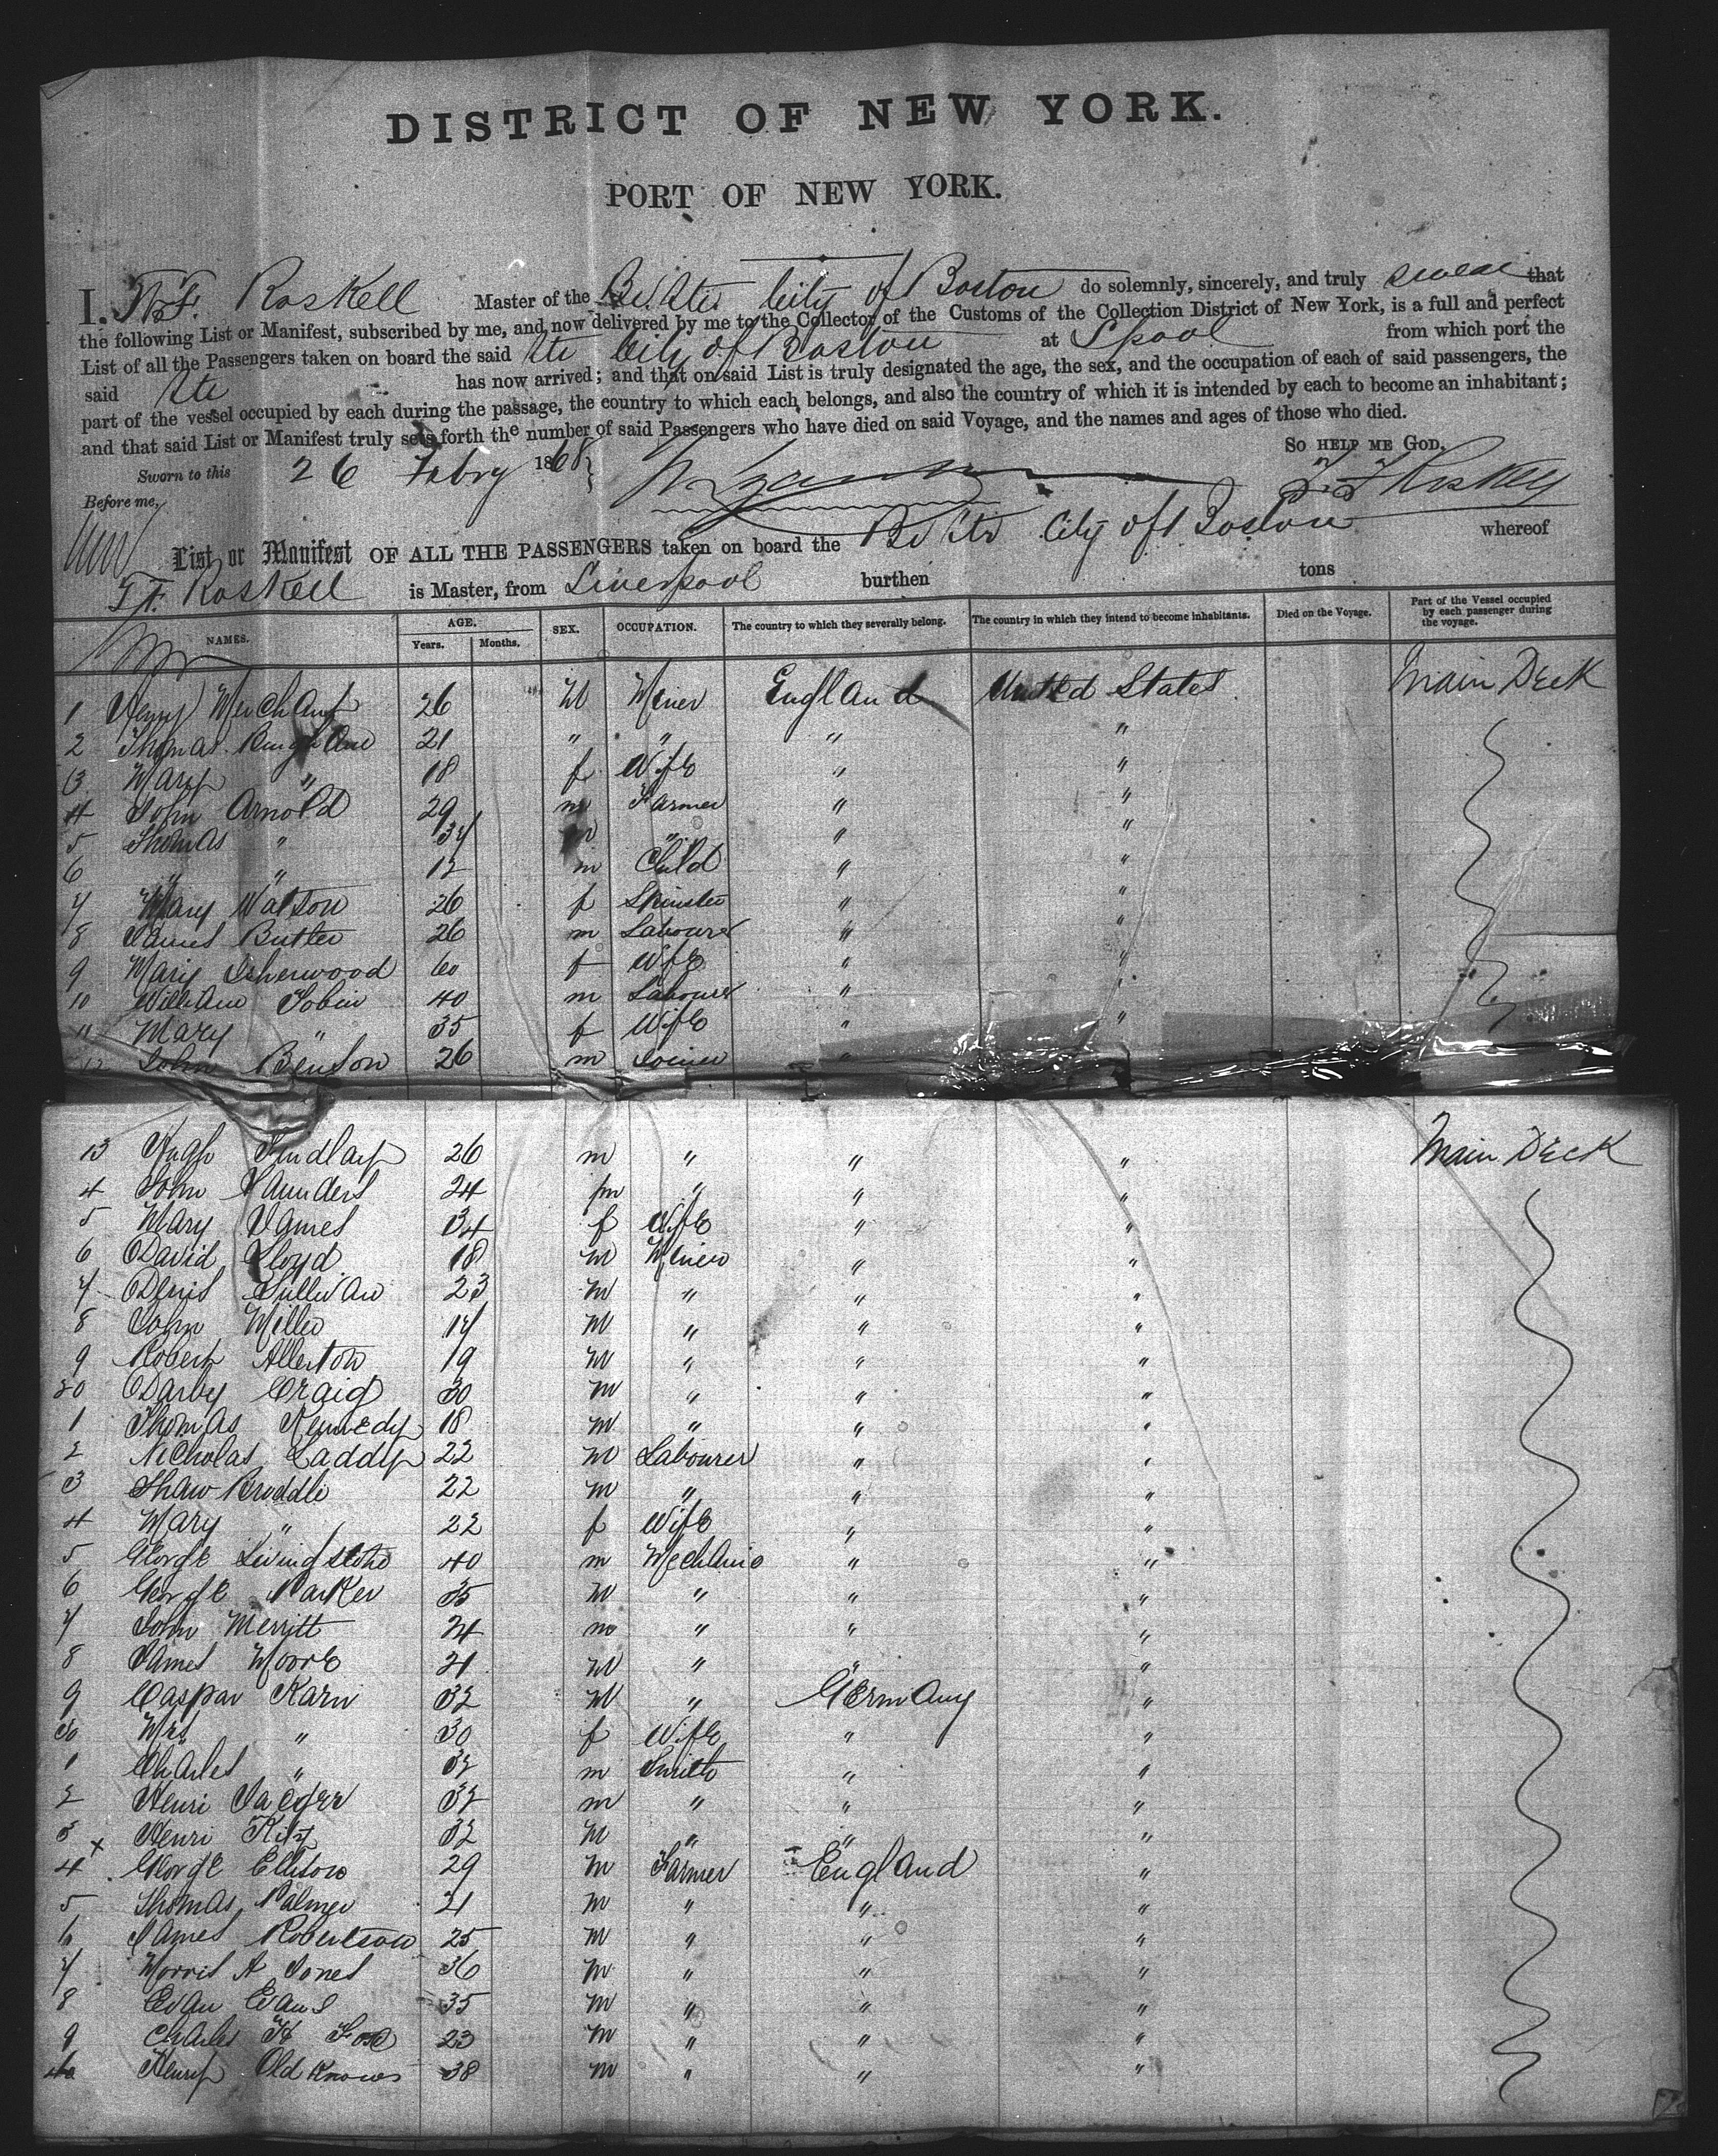 DISTRICT OF NEW YORK.
PORT OF NEW YORK.
I, Roskell Master of the City of Boston do solemnly, sincerely, and truly swear that
the following List or Manifest, subscribed by me, and now delivered by me to the Collector of the Customs of the Collection District of New York, is a full and perfect
List of all the Passengers taken on board the said City of Boston at Lpool from which port the
said has now arrived; and that on said List is truly designated the age, the sex, and the occupation of each of said passengers, the
part of the vessel occupied by each during the passage, the country to which each belongs, and also the country of which it is intended by each to become an inhabitant;
and that said List or Manifest truly sets forth the number of said Passengers who have died on said Voyage, and the names and ages of those who died.
SO HELP ME GOD.
Sworn to this 26 Febry 1868
Before me,
List or Manifest OF ALL THE PASSENGERS taken on board the City of Boston whereof
Roskell is Master, from Liverpool burthen tons
NAMES. AGE. Years. Months. SEX. OCCUPATION. The country to which they severally belong. The country in which they intend to become inhabitants. Died on the Voyage. Part of the Vessel occupied by each passenger during the voyage.
1 Henry Merchant 26 M Miner England United States Main Deck
2 Thomas 21 " " " "
3 Mary " 18 f Wife " "
4 John Arnold 29 m Farmer " "
5 Thomas " 34 m " " "
6 " " 12 m Child " "
7 Mary Watson 26 f Spinster " "
8 James Butler 26 m Labourer " "
9 Mary Isherwood 60 f Wife " "
10 William Tobin 40 m Labourer " "
11 Mary " 35 f Wife " "
12 John Benson 26 m Joiner "
13 Hugh Findlay 26 m " " " Main Deck
4 John Saunders 24 m " " "
5 Mary James 34 f Wife " "
6 David Lloyd 18 m Miner " "
7 Denis Sullivan 23 m " " "
8 John Miller 17 m " " "
9 Robert Allerton 19 m " " "
20 Darby Craig 30 m " " "
1 Thomas Kennedy 18 m " " "
2 Nicholas Laddy 22 m Labourer " "
3 Shaw Bruddle 22 m " " "
4 Mary " 22 f Wife " "
5 George Livingstone 40 m Mechanic " "
6 George Parker 35 m " " "
7 John Merritt 24 m " " "
8 James Moore 21 m " " "
9 Caspar Karn 32 m " Germany "
30 Mrs " 30 f Wife " "
1 Charles " 32 m Smith " "
2 Henri Jaeger 32 m " " "
3 Henri 32 m " " "
x
4 George Ellison 29 m Farmer England "
5 Thomas Palmer 21 m " " "
6 James Robertson 25 m " " "
7 Morris A Jones 36 m " " "
8 Evan Evans 35 m " " "
9 Charles H Fox 23 m " " "
40 Henry Oldknows 38 m " " "